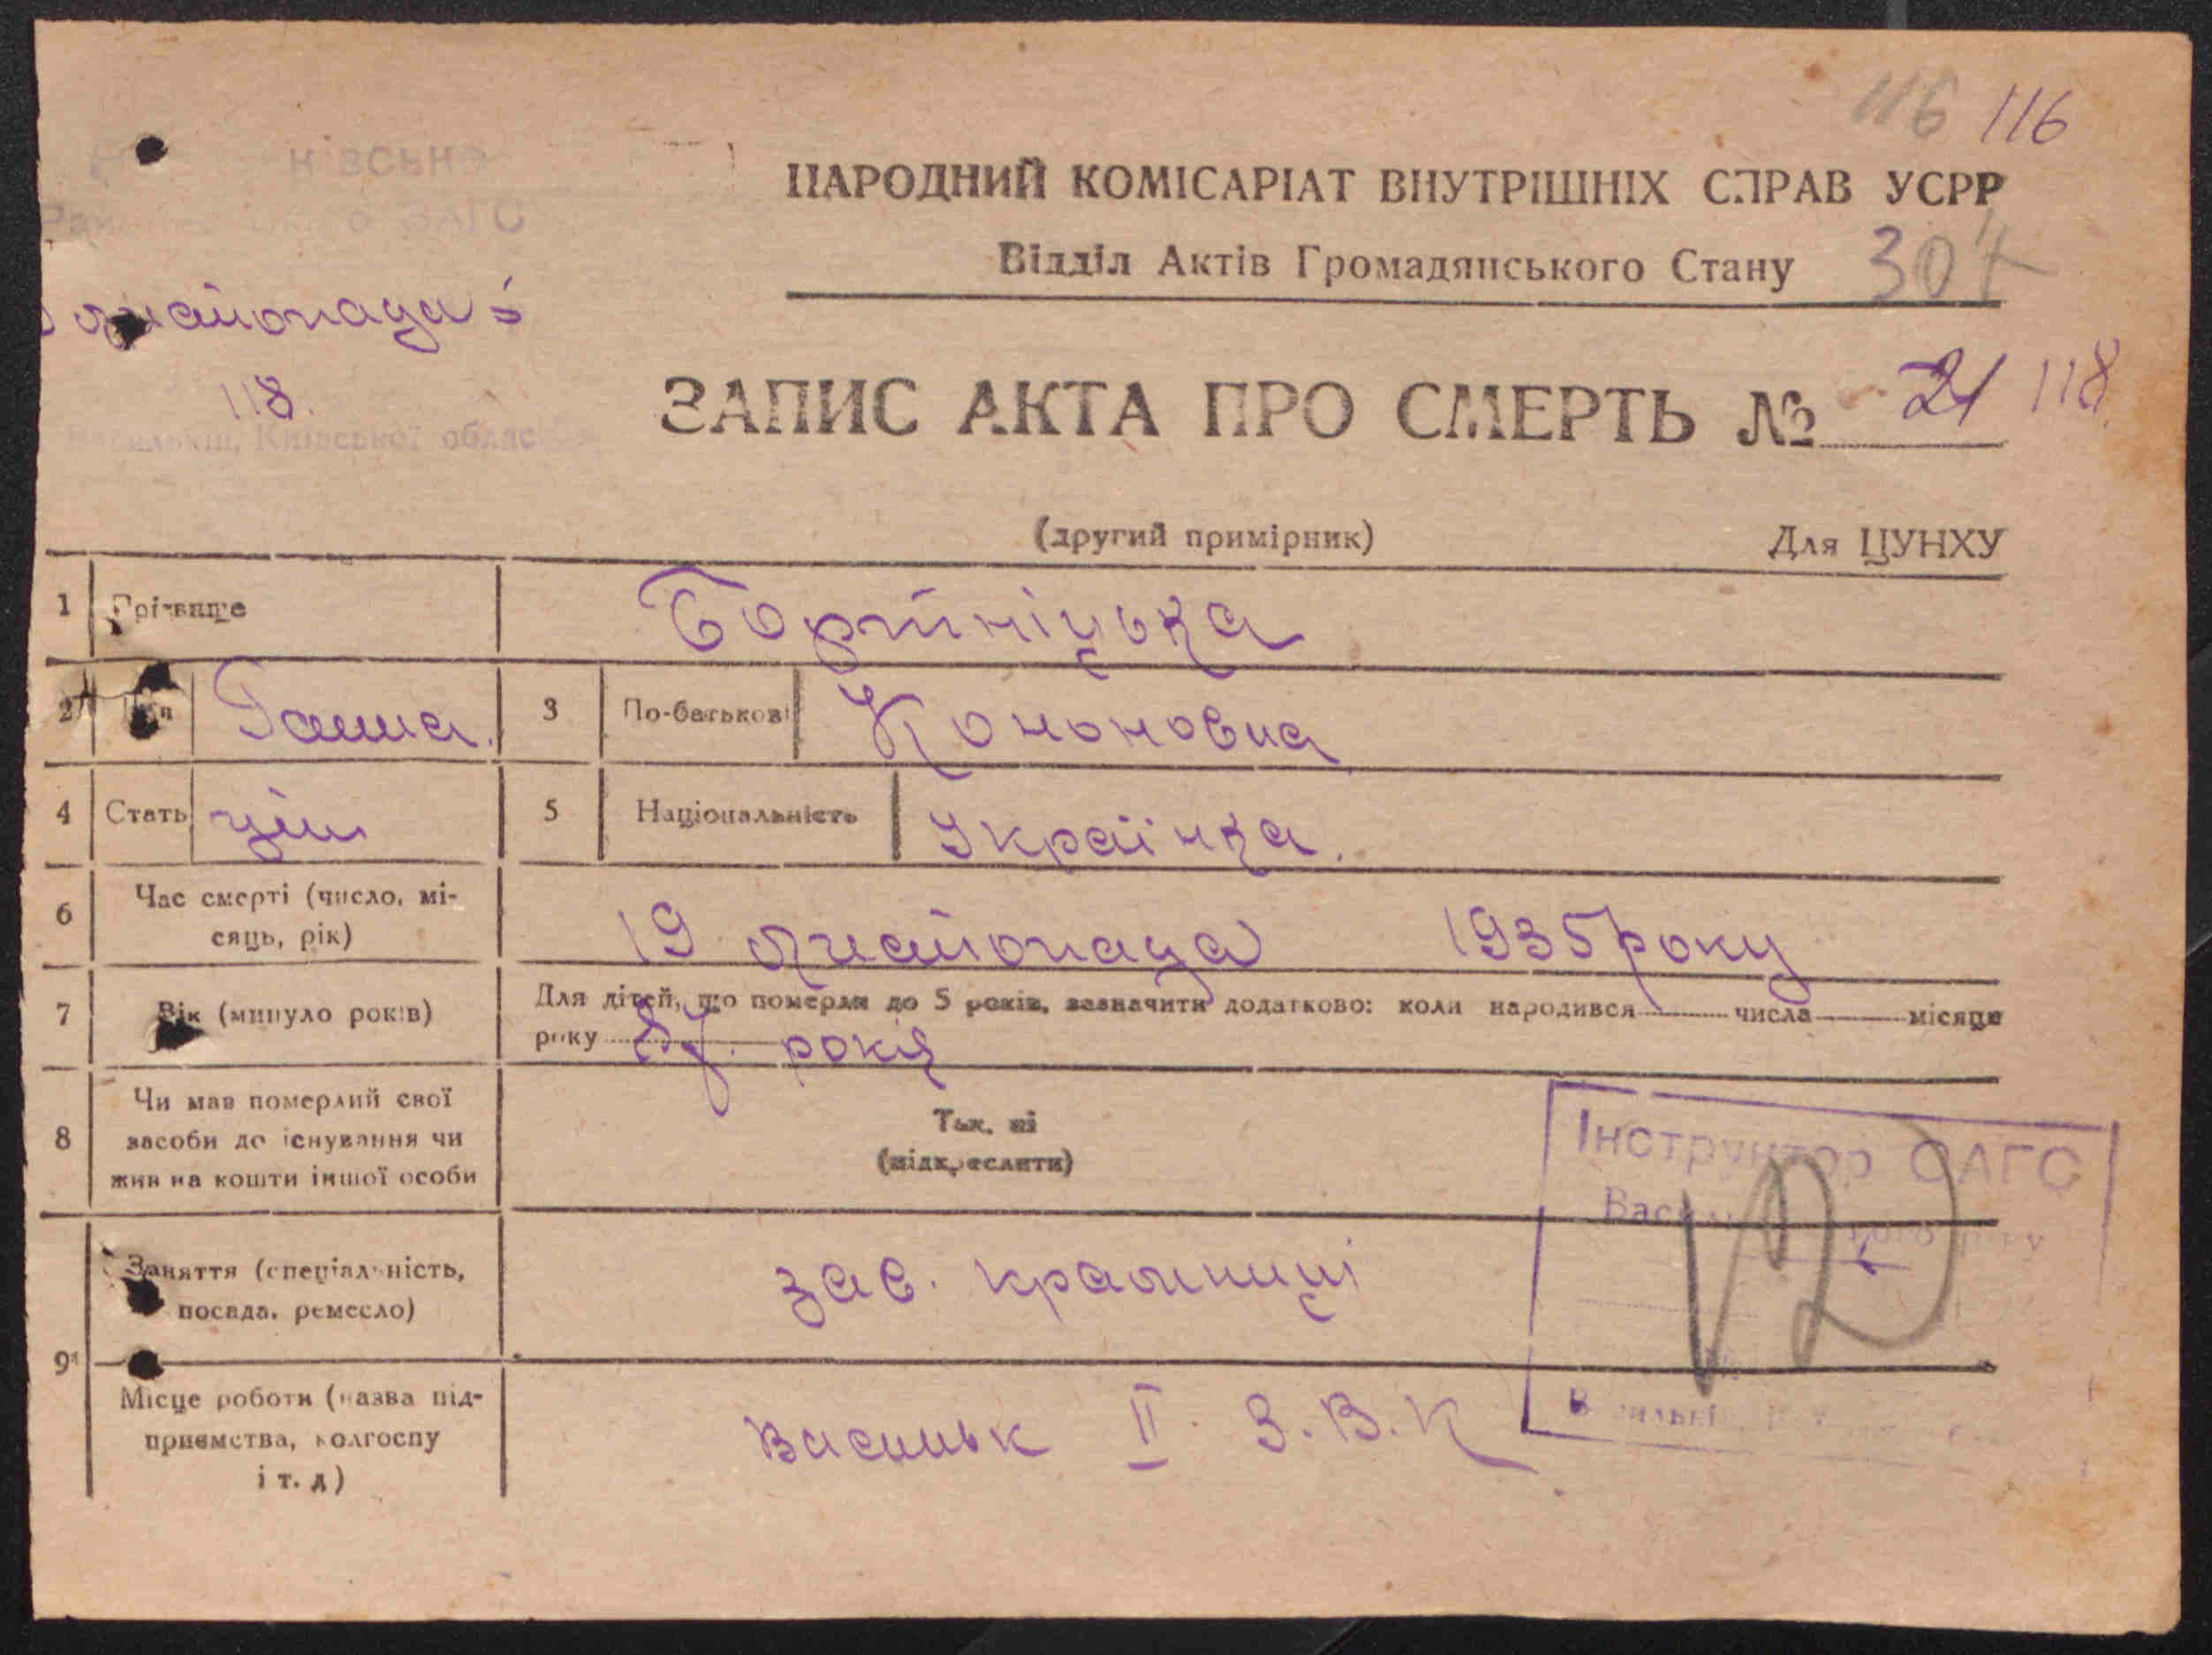 116 116
НАРОДНИЙ КОМІСАРІАТ ВНУТРІШНІХ СПРАВ УСРР
Відділ Актів Громадянського Стану 304
ЗАГС
118.
Васильків, Київської облас
ЗАПИС АКТА ПРО СМЕРТЬ № 21 118.
(другий примірник) Для ЦУНХУ
1 Прізвище Бортніцька
2 Ім'я Гаша. 3 По-батькові Кононовна
4 Стать жін 5 Національність Українка.
6 Час смерті (число, місяць, рік) 19 листопада 1935 року
7 Вік (минуло років) Для дітей, що померли до 5 років, зазначити додатково: коли народився числа місяця
року років
8 Чи мав померлий свої засоби до існування чи жив на кошти іншої особи Так, ні
(підкреслити)
Інструктор ЗАГС
9 Заняття (спеціальність, посада, ремесло) зав. крамниці
Місце роботи (назва підприємства, колгоспу і т. д) Васильк II З.В.К